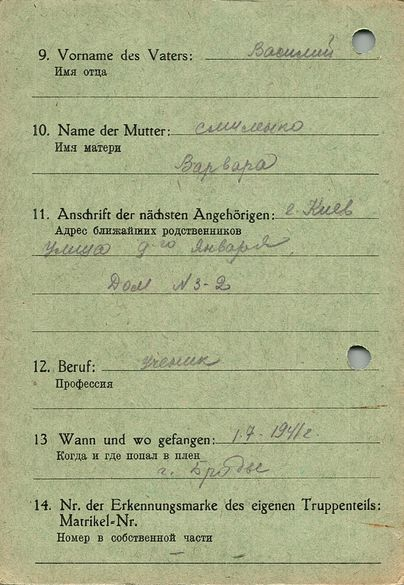 9. Vorname des Vaters: Василий
Имя отца
10. Name der Mutter: Смиленко
Имя матери
Варвара
11. Anschrift der nächsten Angehörigen: г. Киев
Адрес ближайших родственников
улица 9-го Января.
Дом N 3-2
12. Beruf: ученик
Профессия
13 Wann und wo gefangen: 1.7-1941г
Когда и где попал в плен
г. Броды
14. Nr. der Erkennungsmarke des eigenen Truppenteils:
Matrikel-Nr.
Номер в собственной части
–